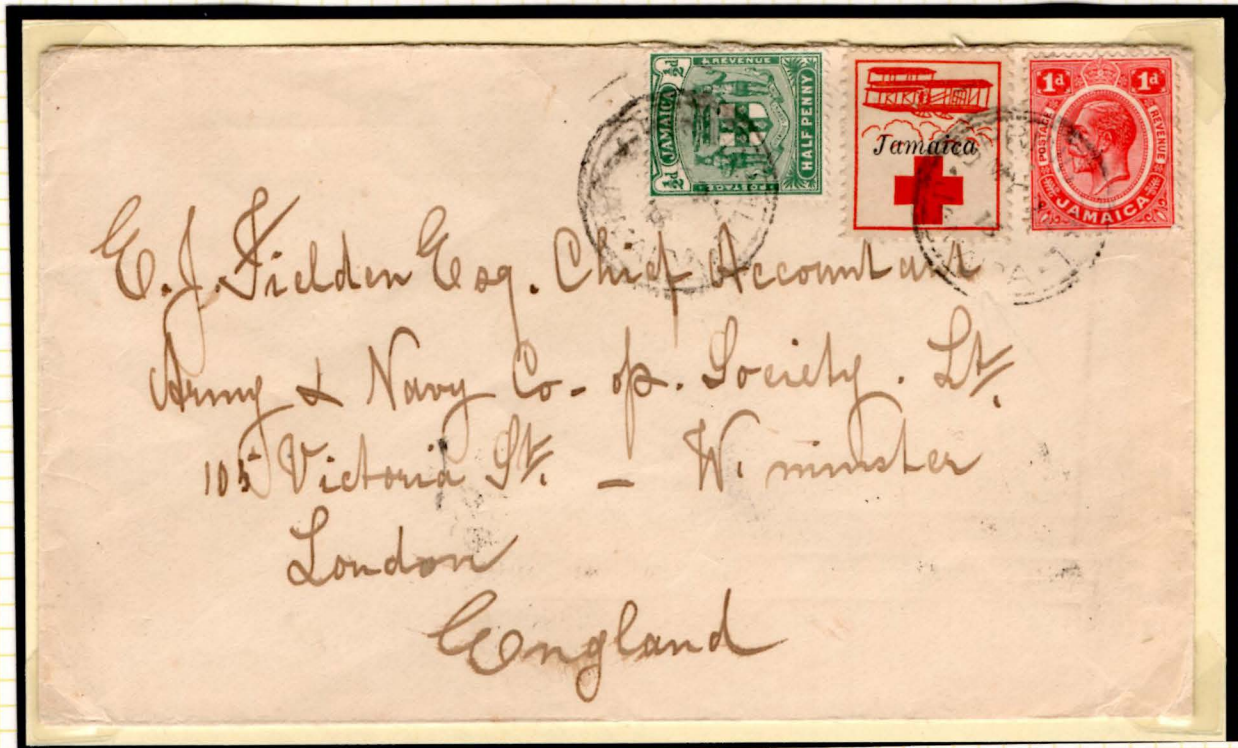 ½d JAMAICA ½d
REVENUE
POSTAGE
HALF PENNY
Jamaica
1d 1d
POSTAGE REVENUE
JAMAICA
E. J. Fielden Esq. Chief Accountant
Army & Navy Co-op. Society. Lt.
105 Victoria St. – W. minster
London
England